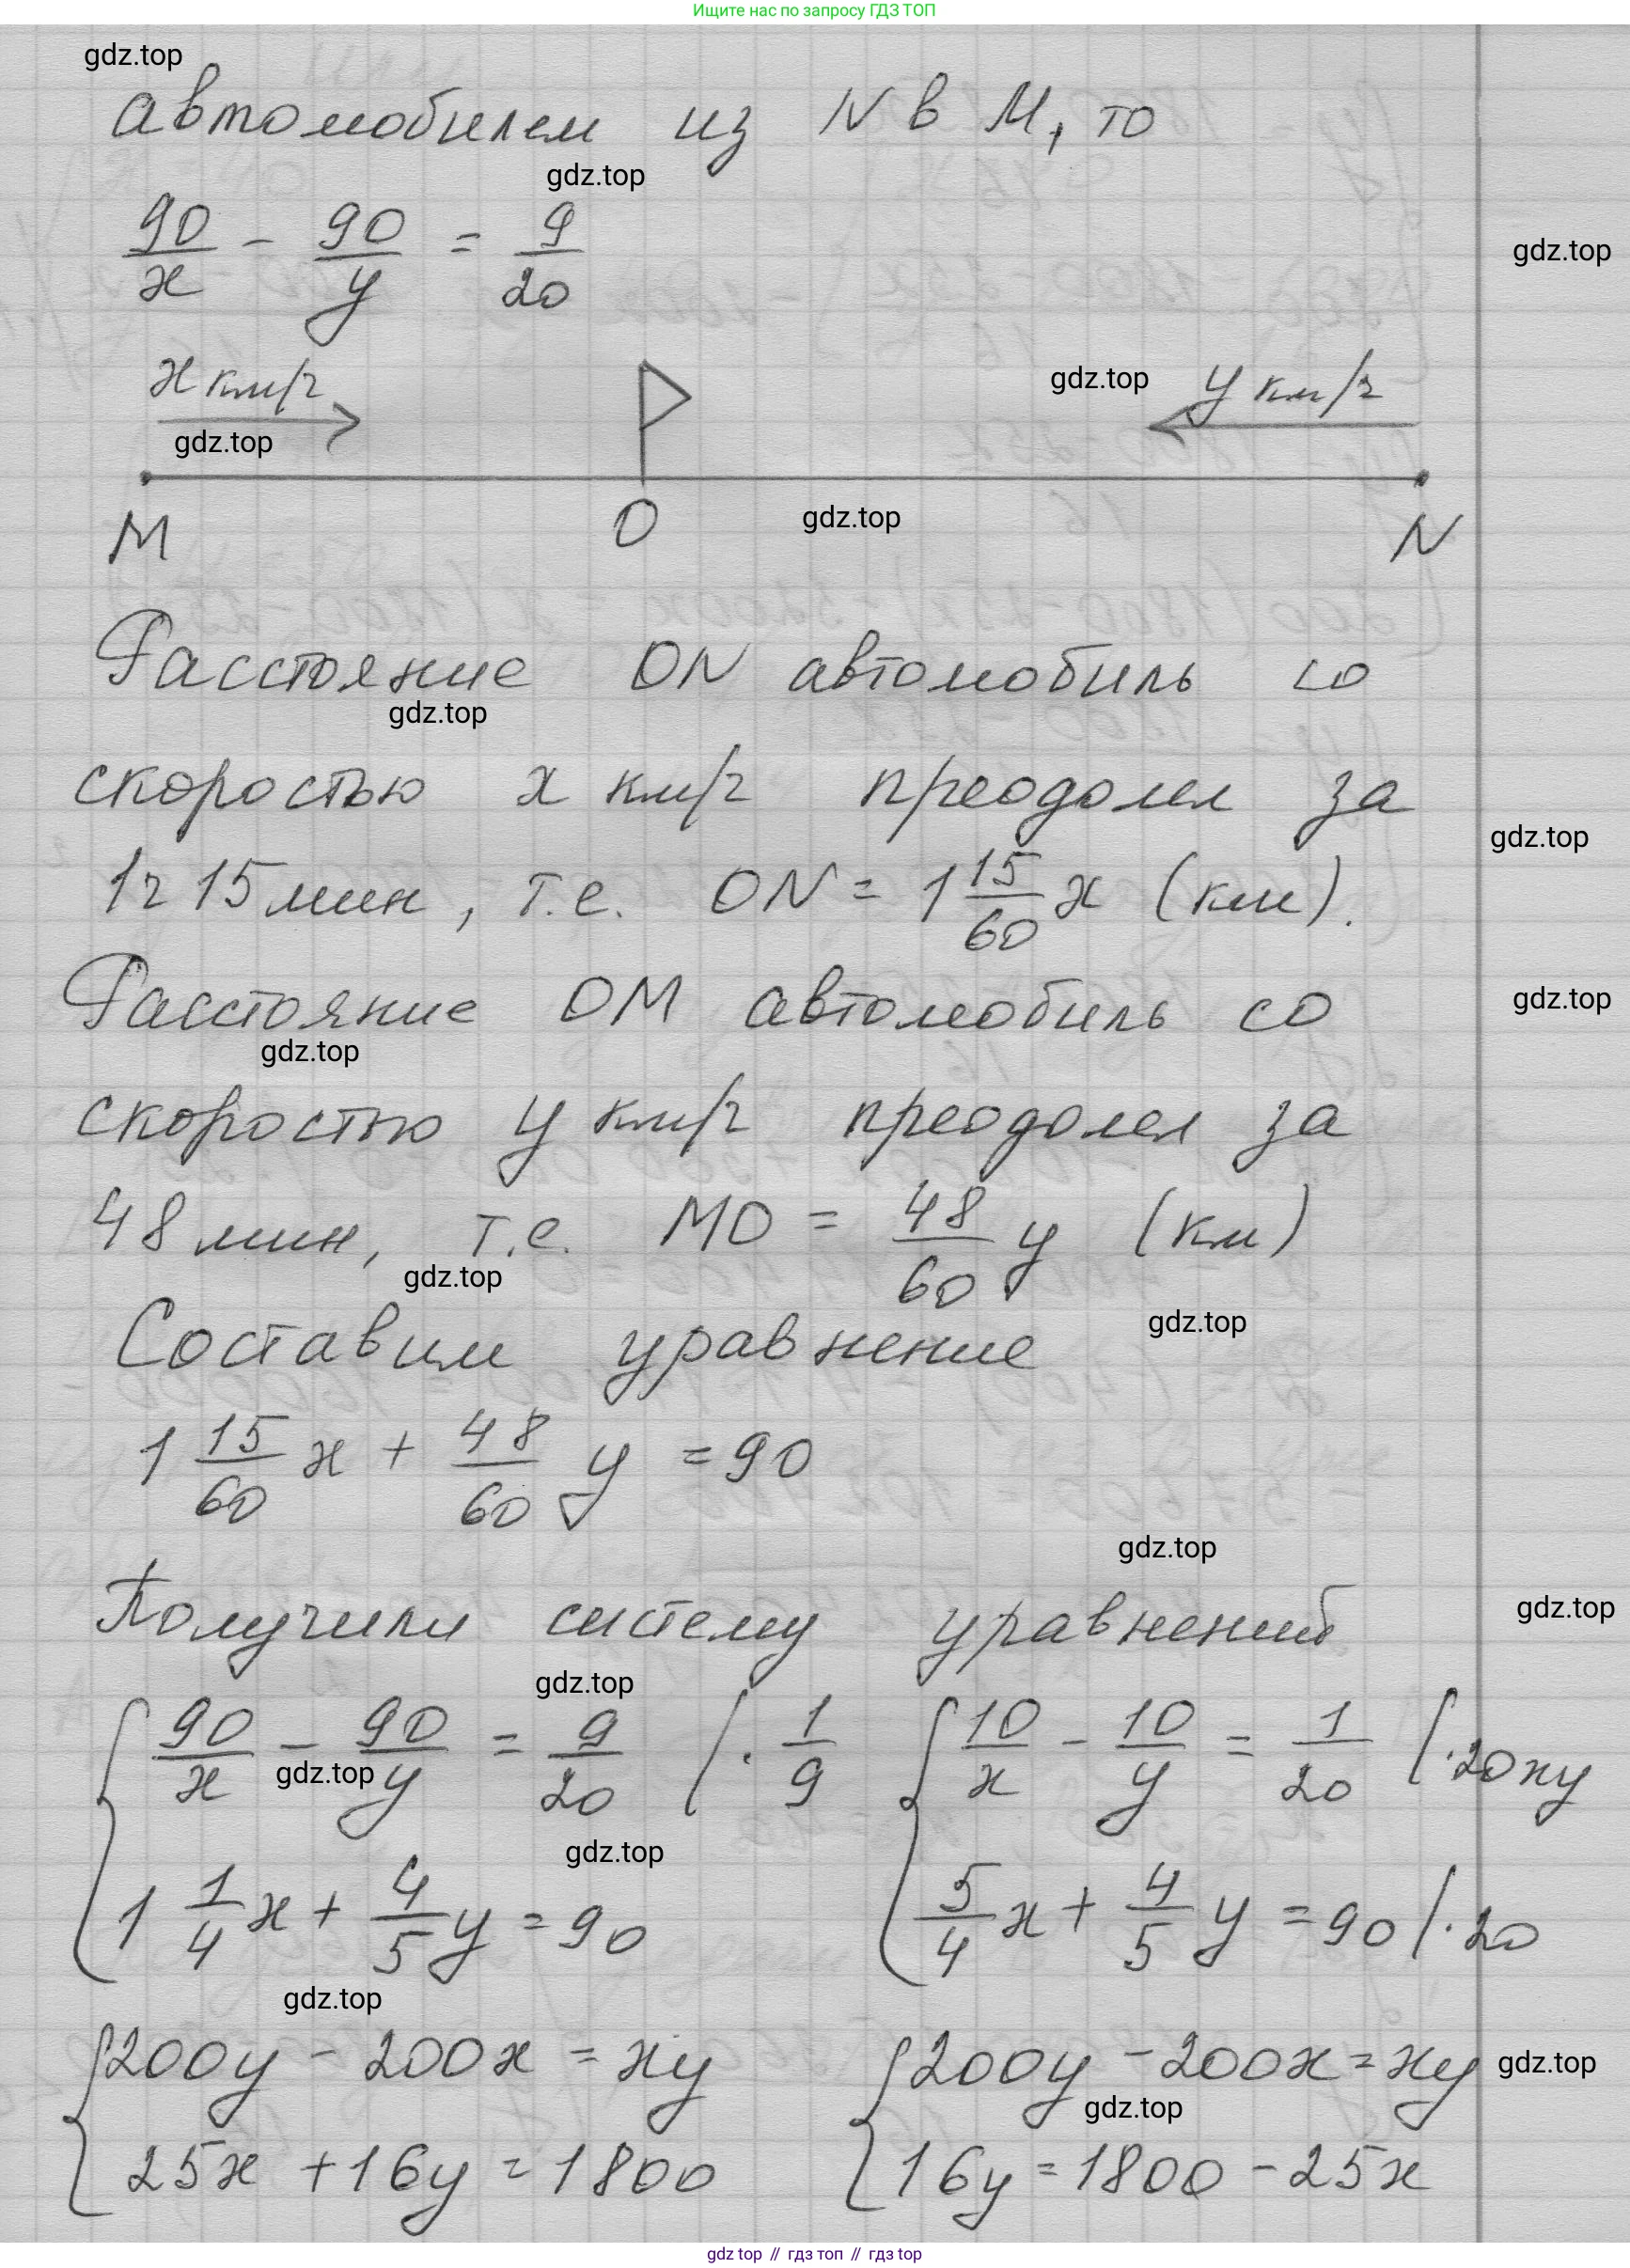 Ищите нас по запросу ГДЗ ТОП
gdz.top
автомобилем из N в M, то
gdz.top
90/x - 90/y = 9/20
gdz.top
x км/ч
gdz.top
y км/ч
gdz.top
M O N
gdz.top
Расстояние ON автомобиль со
gdz.top
скоростью x км/ч преодолел за
gdz.top
1ч 15 мин, т.е. ON = 1 15/60 x (км).
Расстояние OM автомобиль со
gdz.top
gdz.top
скоростью y км/ч преодолел за
48 мин, т.е. MO = 48/60 y (км)
gdz.top
gdz.top
Составим уравнение
1 15/60 x + 48/60 y = 90
gdz.top
Получили систему уравнений
gdz.top
gdz.top
{ 90/x - 90/y = 9/20 | · 1/9 { 10/x - 10/y = 1/20 | · 20xy
gdz.top
gdz.top
1 1/4 x + 4/5 y = 90 5/4 x + 4/5 y = 90 | · 20
gdz.top
{ 200y - 200x = xy { 200y - 200x = xy
gdz.top
gdz.top
25x + 16y = 1800 16y = 1800 - 25x
gdz top // гдз топ // гдз top